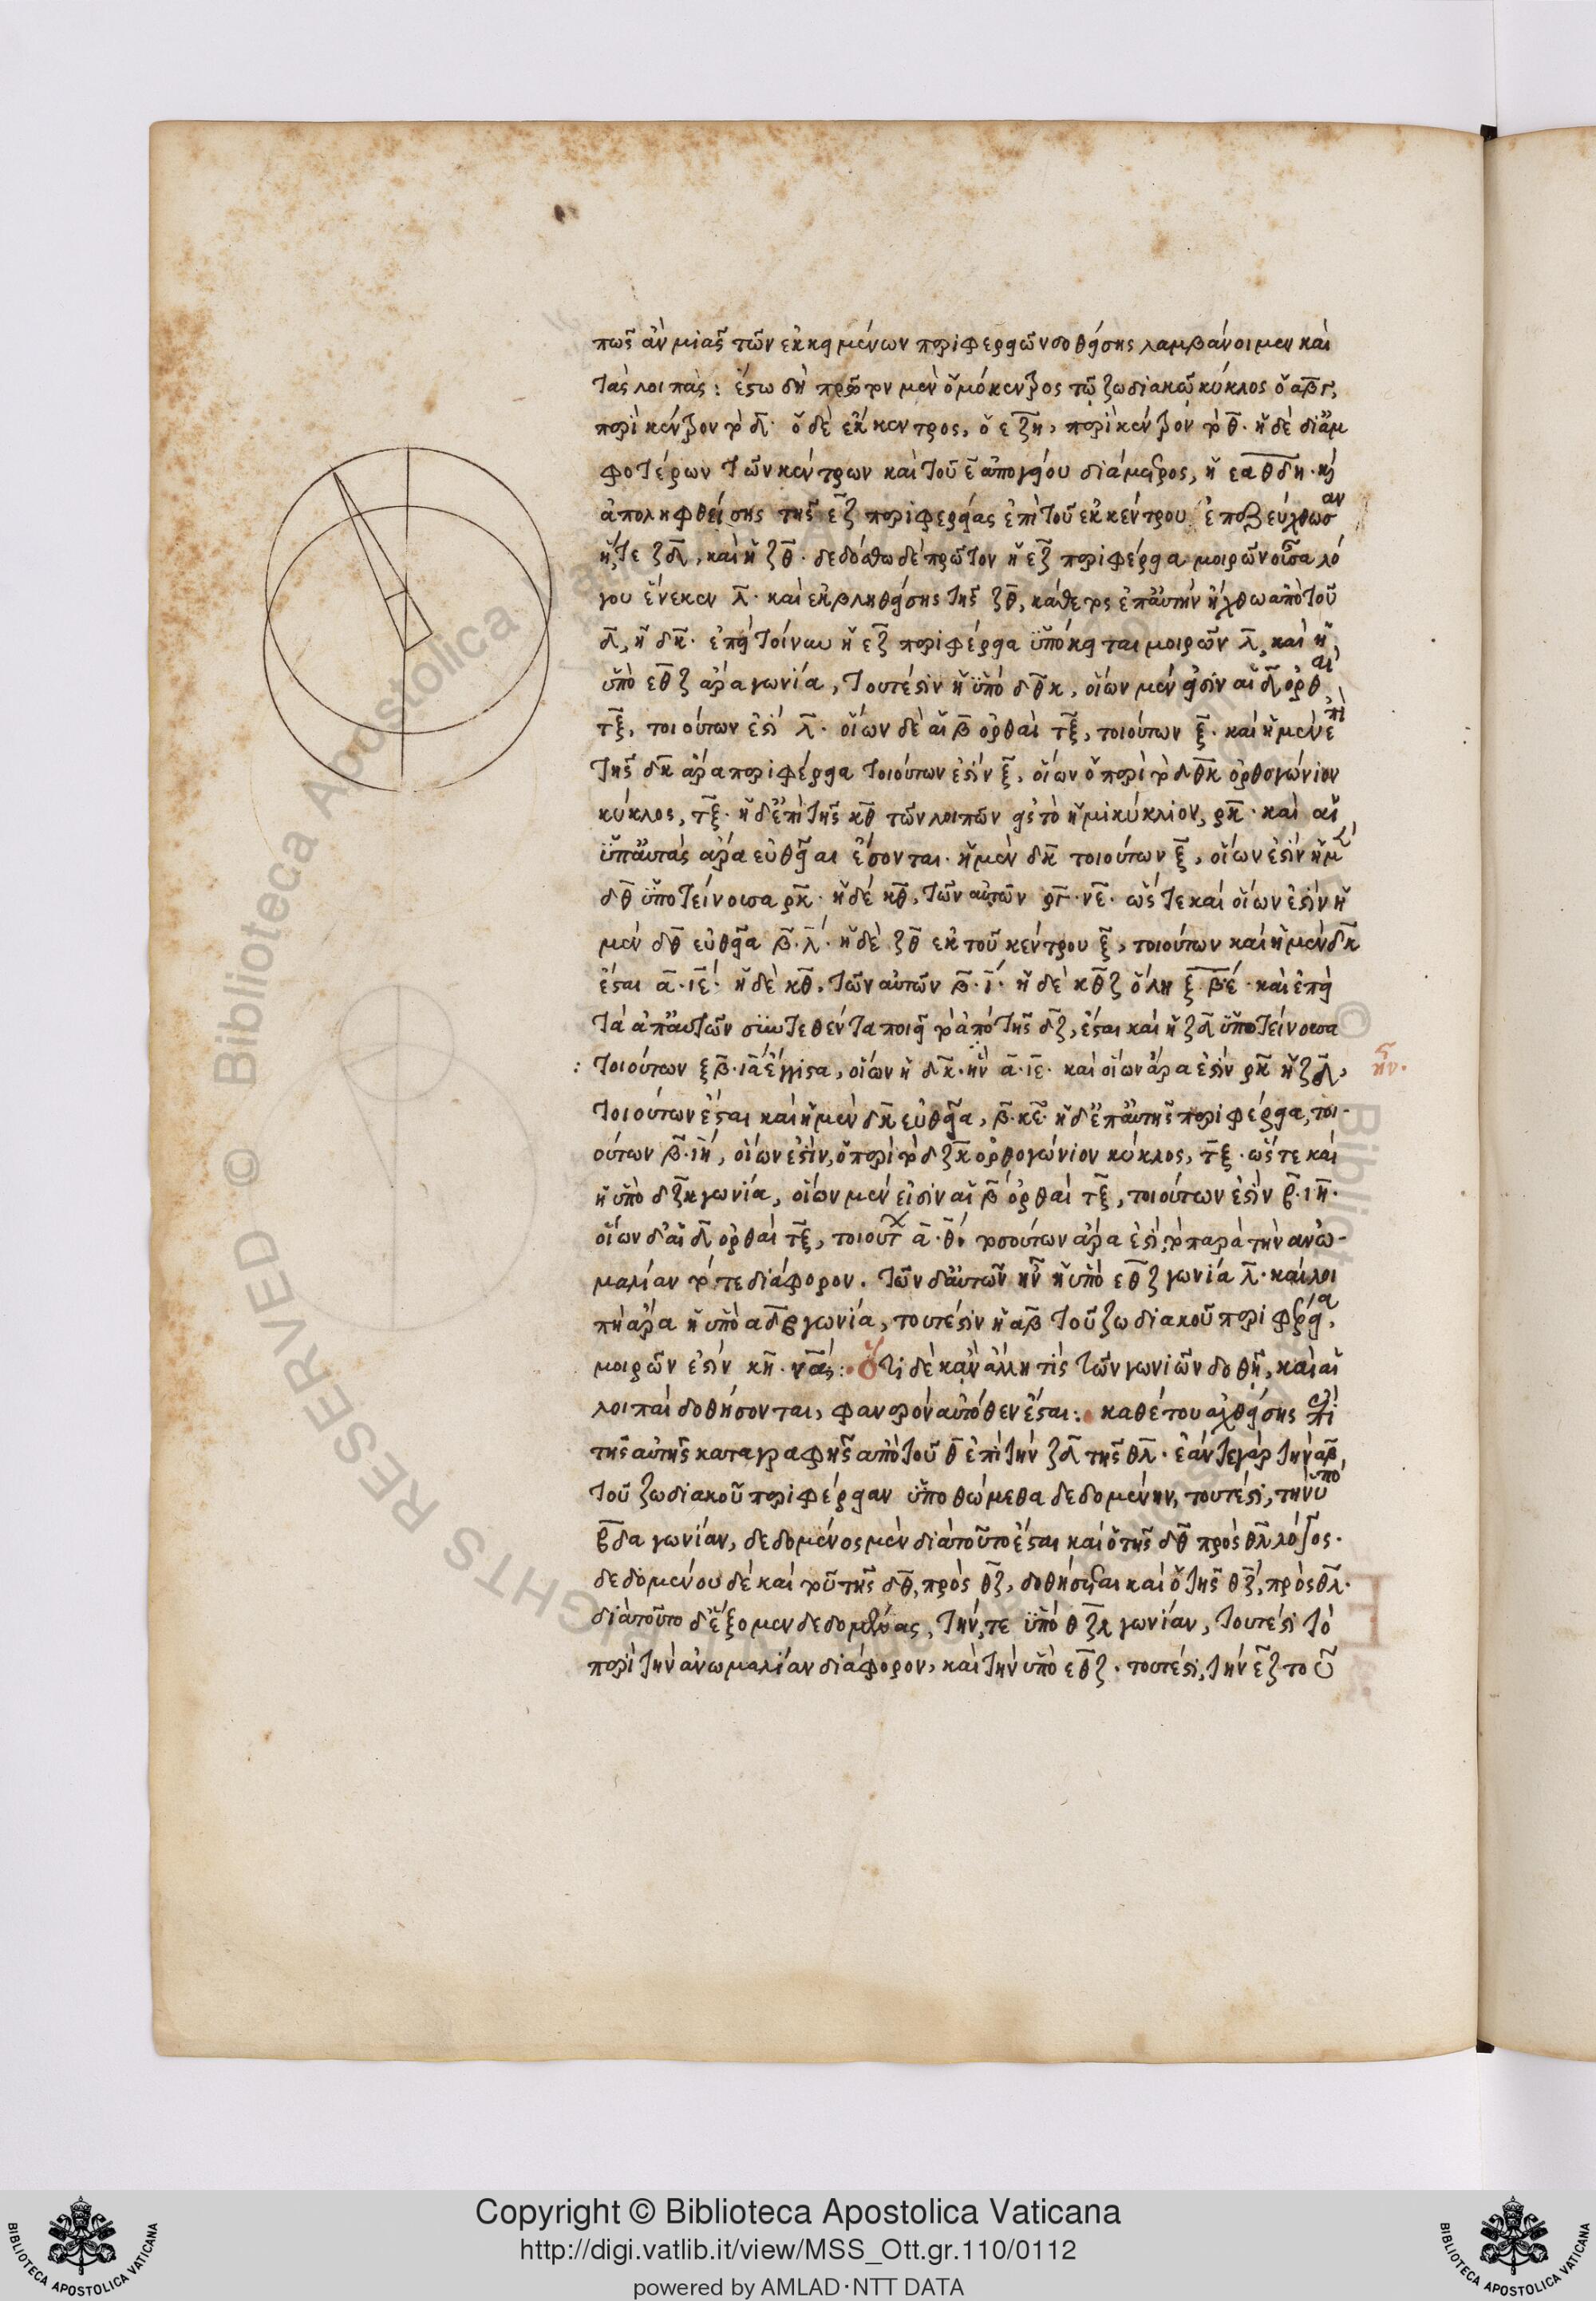 πῶς ἂν μιᾶς τῶν ἐκκειμένων περιφερειῶν δοθείσης λαμβάνοιμεν καὶ
τὰς λοιπάς: ἔστω δὴ πρῶτον μὲν ὁμόκεντρος τῷ ζωδιακῷ κύκλος ὁ αβγ,
περὶ κέντρον τὸ δ· ὁ δὲ ἔκκεντρος, ὁ εζη, περὶ κέντρον τὸ θ· ἡ δὲ δι' ἀμ
φοτέρων τῶν κέντρων καὶ τοῦ ε ἀπογείου διάμετρος, ἡ εαθδη· καὶ
ἀποληφθείσης τῆς εζ περιφερείας ἐπὶ τοῦ ἐκκέντρου ἐπεζεύχθωσαν
ἥ τε ζδ, καὶ ἡ ζθ· δεδόσθω δὲ πρῶτον ἡ εζ περιφέρεια μοιρῶν οὖσα λό
γου ἕνεκεν λ· καὶ ἐκβληθείσης τῆς ζθ, κάθετος ἐπ' αὐτὴν ἤχθω ἀπὸ τοῦ
δ, ἡ δκ· ἐπεὶ τοίνυν ἡ εζ περιφέρεια ὑπόκειται μοιρῶν λ, καὶ ἡ
ὑπὸ εθζ ἄρα γωνία, τουτέστιν ἡ ὑπὸ δθκ, οἵων μέν εἰσιν αἱ δ ὀρθαὶ
τξ, τοιούτων ἐστὶ λ· οἵων δὲ αἱ β ὀρθαὶ τξ, τοιούτων ξ· καὶ ἡ μὲν ἐπὶ
τῆς δκ ἄρα περιφέρεια τοιούτων ἐστὶν ξ, οἵων ὁ περὶ τὸ δθκ ὀρθογώνιον
κύκλος, τξ· ἡ δ' ἐπὶ τῆς κθ τῶν λοιπῶν εἰς τὸ ἡμικύκλιον, ρκ· καὶ αἱ
ὑπ' αὐτὰς ἄρα εὐθεῖαι ἔσονται· ἡ μὲν δκ τοιούτων ξ, οἵων ἐστὶν ἡ μὲν
δθ ὑποτείνουσα ρκ· ἡ δὲ κθ, τῶν αὐτῶν ργ·νε· ὥστε καὶ οἵων ἐστὶν ἡ
μὲν δθ εὐθεῖα β·λ· ἡ δὲ ζθ ἐκ τοῦ κέντρου ξ, τοιούτων καὶ ἡ μὲν δκ
ἔσται α·ιε· ἡ δὲ κθ, τῶν αὐτῶν β·ι· ἡ δὲ κθζ ὅλη ξβ·ι· καὶ ἐπεὶ
τὰ ἀπ' αὐτῶν συντεθέντα ποιεῖ τὸ ἀπὸ τῆς δζ, ἔσται καὶ ἡ ζδ ὑποτείνουσα
τοιούτων ξβ·ια ἔγγιστα, οἵων ἡ δκ ἦν α·ιε· καὶ οἵων ἄρα ἐστὶν ρκ ἡ ζδ,
τοιούτων ἔσται καὶ ἡ μὲν δκ εὐθεῖα, β·κε· ἡ δ' ἐπ' αὐτῆς περιφέρεια, τοι-
ούτων β·ιη, οἵων ἐστὶν, ὁ περὶ τὸ δζκ ὀρθογώνιον κύκλος, τξ· ὥστε καὶ
ἡ ὑπὸ δζκ γωνία, οἵων μέν εἰσιν αἱ β ὀρθαὶ τξ, τοιούτων ἐστὶν β·ιη·
οἵων δ' αἱ δ ὀρθαὶ τξ, τοιούτ α·θ· τοσούτων ἄρα ἐστὶ, τὸ παρὰ τὴν ἀνω-
μαλίαν τότε διάφορον. τῶν δ' αὐτῶν ἦν ἡ ὑπὸ εθζ γωνία λ· καὶ λοι
πὴ ἄρα ἡ ὑπὸ αδβ γωνία, τουτέστιν ἡ αβ τοῦ ζωδιακοῦ περιφέρεια,
μοιρῶν ἐστὶν κη·να: Ὅτι δὲ κἂν ἄλλη τις τῶν γωνιῶν δοθῇ, καὶ αἱ
λοιπαὶ δοθήσονται, φανερὸν αὐτόθεν ἔσται: καθέτου ἀχθείσης ἐπὶ
τῆς αὐτῆς καταγραφῆς ἀπὸ τοῦ θ ἐπὶ τὴν ζδ τῆς θλ· ἐάν τε γὰρ τὴν αβ
τοῦ ζωδιακοῦ περιφέρειαν ὑποθώμεθα δεδομένην, τουτέστι, τὴν ὑπὸ
βδα γωνίαν, δεδομένος μὲν διὰ τοῦτο ἔσται καὶ ὁ τῆς δθ πρὸς θλ λόγος·
δεδομένου δὲ καὶ τοῦ τῆς δθ, πρὸς θζ, δοθήσεται καὶ ὁ τῆς θζ, πρὸς θλ·
διὰ τοῦτο δ' ἕξομεν δεδομένας, τήν, τε ὑπὸ θζλ γωνίαν, τουτέστι τὸ
περὶ τὴν ἀνωμαλίαν διάφορον, καὶ τὴν ὑπὸ εθζ· τουτέστι, τὴν εζ τοῦ
ἦν·
Copyright © Biblioteca Apostolica Vaticana
http://digi.vatlib.it/view/MSS_Ott.gr.110/0112
powered by AMLAD·NTT DATA
BIBLIOTECA APOSTOLICA VATICANA
BIBLIOTECA APOSTOLICA VATICANA